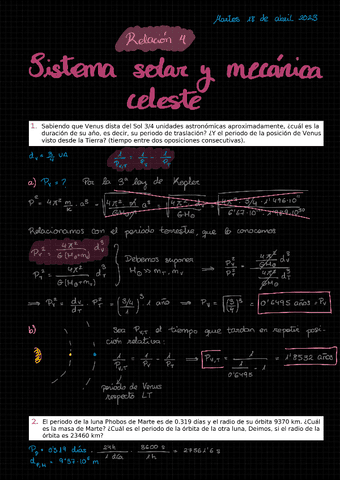 Martes 18 de abril 2023
Relación 4
Sistema solar y mecánica
celeste
1. Sabiendo que Venus dista del Sol 3/4 unidades astronómicas aproximadamente, ¿cuál es la
duración de su año, es decir, su periodo de traslación? ¿Y el periodo de la posición de Venus
visto desde la Tierra? (tiempo entre dos oposiciones consecutivas).
d_v = 3/4 UA
a) P_v = ? Por la 3ª ley de Kepler
Relacionamos con el periodo terrestre, que lo conocemos
P_v² = 4π² / G(M_⊙+m_v) d_v³
P_T² = 4π² / G(M_⊙+m_T) d_T³
Debemos suponer
M_⊙ >> m_T, m_v
⟹ P_v² = d_v³/d_T³ · P_T² = (3/4)³ · 1 año ⟹ P_v = √(3/4)³ = 0'6495 años = P_v
b) Sea P_v,T el tiempo que tardan en repetir posi-
ción relativa:
1/P_v,T = 1/P_v - 1/P_T ⟹ P_v,T = 1 / (1/0'6495 - 1) = 1'8532 años
periodo de Venus
respecto LT
2. El periodo de la luna Phobos de Marte es de 0.319 días y el radio de su órbita 9370 km. ¿Cuál
es la masa de Marte? ¿Cuál es el periodo de la órbita de la otra luna. Deimos, si el radio de la
órbita es 23460 km?